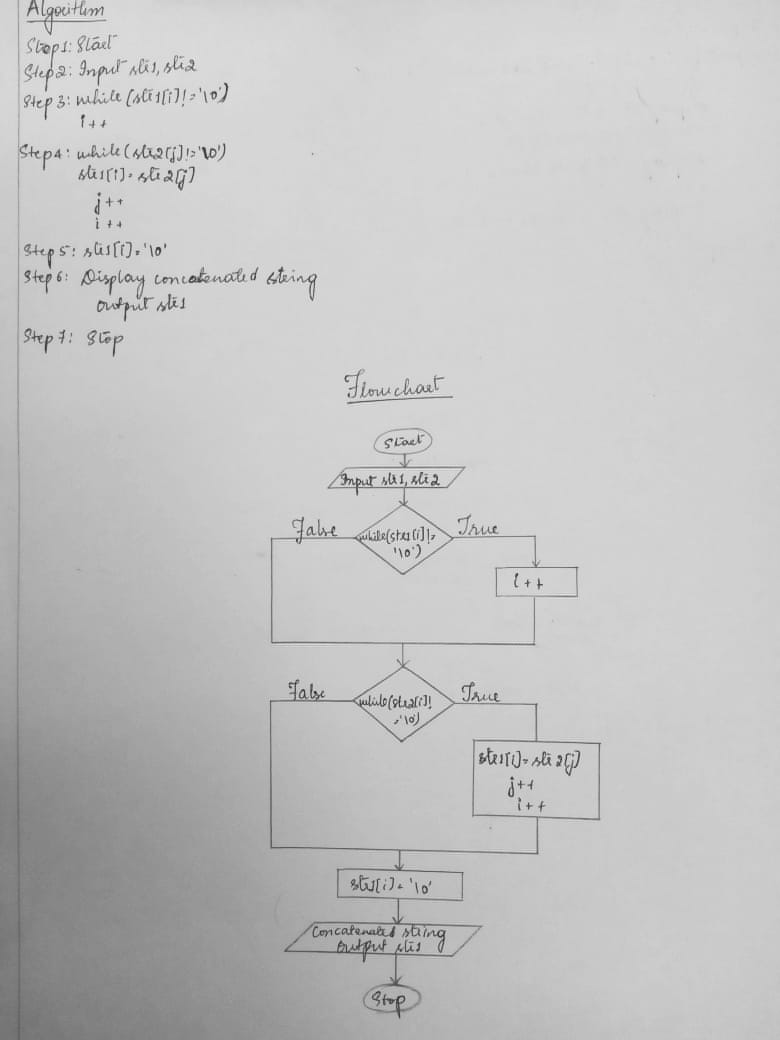 Algorithm
Step1: Start
Step2: Input str1, str2
Step 3: while (str1[i]!='\0')
i++
Step4: while(str2[j]!='\0')
str1[i]=str2[j]
j++
i++
Step 5: str1[i]='\0'
Step 6: Display concatenated string
output str1
Step 7: Stop
Flowchart
Start
Input str1, str2
False
while(str1[i]!=
'\0')
True
i++
False
while(str2[i]!
='\0)
True
str1[i]=str2[j]
j++
i++
str1[i]='\0'
Concatenated string
output str1
Stop